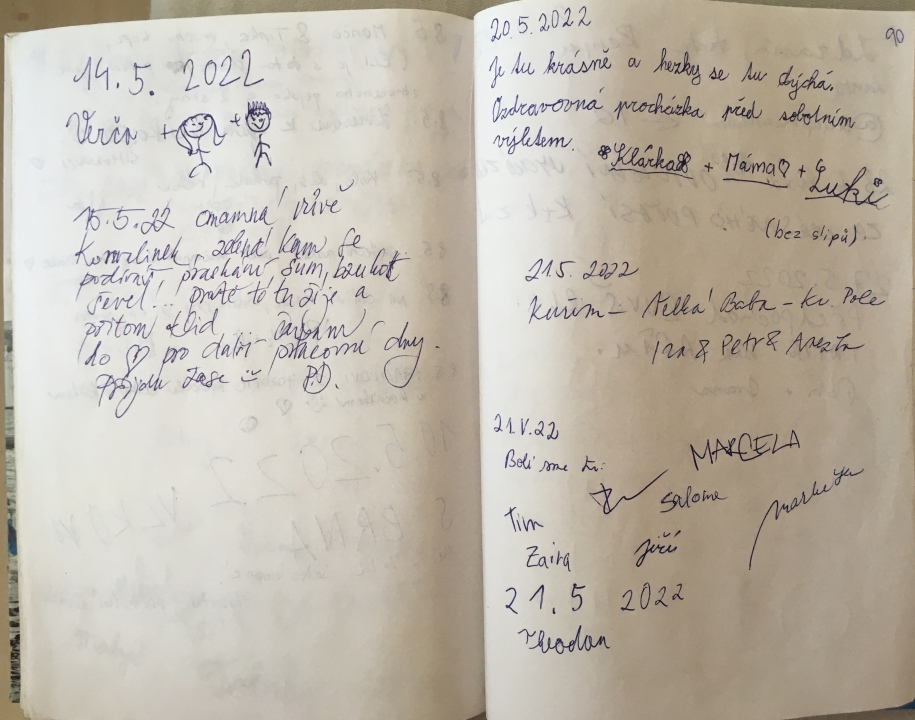 14.5. 2022
Verča + +
15.5.22 omamná vůvě
Konvalinek, zelná kam se
podívaš, praskání, šum, bzukot
ševel!.. prostě to tu žije a
přitom klid
do ♡ pro další pracovní dny.
Přijdu zase
90
20.5.2022
Je tu krásně a hezky se tu dýchá.
Ozdravovná procházka před sobotním
výletem.
Klárka + Máma♡ + Luki
(bez slipů)
21.5. 2022
Kuřim - Velká Baba - Kr. Pole
& Petr &
21.V.22
Boli sme tu:
MARCELA
Salome
Tim
Markéta
Zaira
Jiří
21.5 2022
Theodan